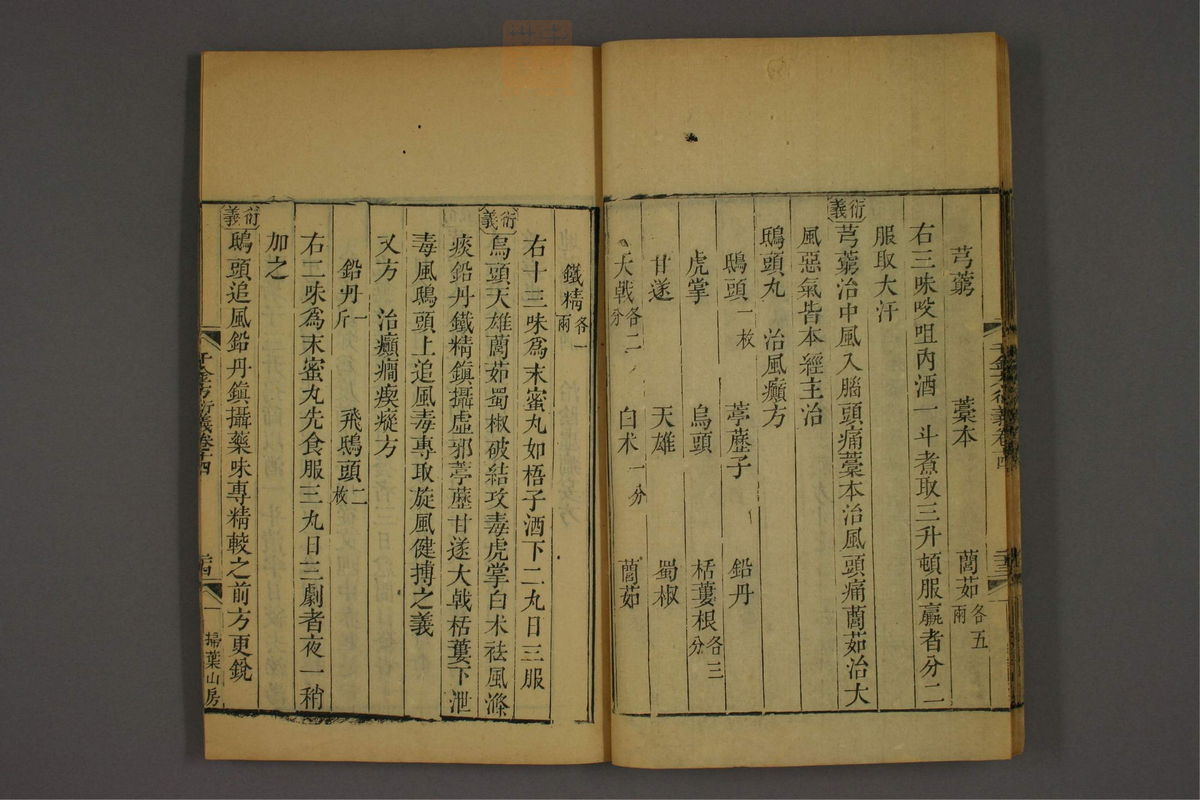 芎藭　藁本　藺茹各五兩
右三味㕮咀內酒一斗煮取三升頓服羸者分二
服取大汗
衍義　芎藭治中風入腦頭痛藁本治風頭痛藺茹治大
風惡氣皆本經主治
鴟頭丸　治風癲方
鴟頭一枚　葶藶子　鉛丹
虎掌　烏頭　栝蔞根各三分
甘遂　天雄　蜀椒
大戟各二分　白朮一分　藺茹
鐵精各一兩
右十三味爲末蜜丸如梧子酒下二丸日三服
衍義　烏頭天雄藺茹蜀椒破結攻毒虎掌白朮祛風滌
痰鉛丹鐵精鎮攝虛邪葶藶甘遂大戟栝蔞下泄
毒風鴟頭上追風毒專取旋風健搏之義
又方　治癲癇瘈瘲方
鉛丹一斤　飛鴟頭二枚
右二味爲末蜜丸先食服三丸日三劇者夜一稍
加之
衍義　鴟頭追風鉛丹鎮攝藥味專精較之前方更銳
千金方衍義卷十四　二十四　掃葉山房